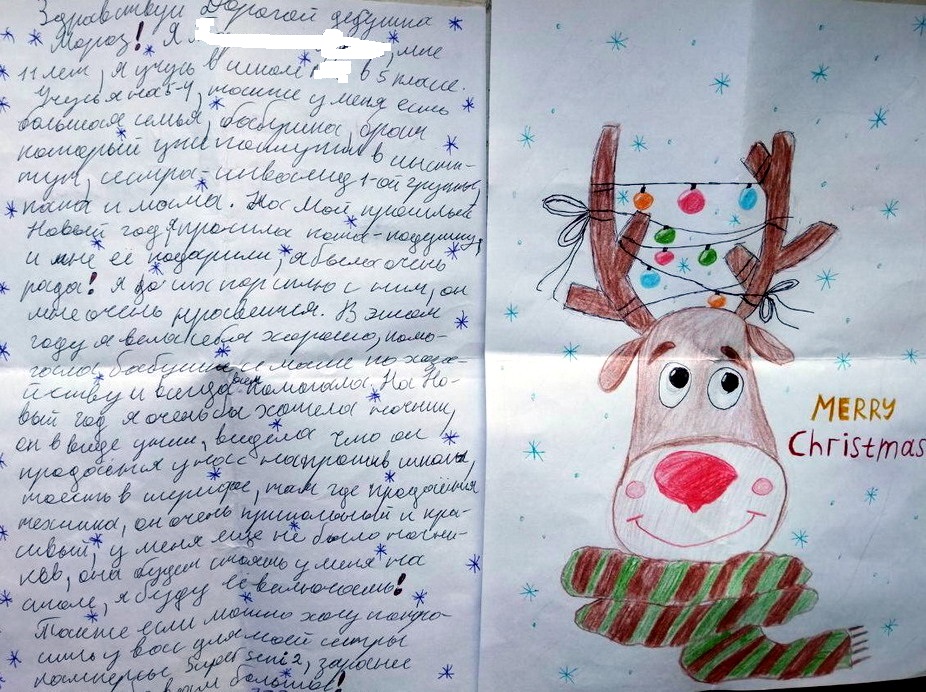 Здравствуй Дорогой дедушка
Мороз! Я мне
11 лет, я учусь в школе в 5 классе.
Учусь я на 5-4, также у меня есть
большая семья, бабушка, брат
который уже поступил в инсти-
тут, сестра-инвалид 1-ой группы,
папа и мама. На мой прошлый
Новый год я просила кота-подушку,
и мне её подарили, я была очень
рада! Я до сих пор сплю с ним, он
мне очень нравится. В этом
году я вела себя хорошо, помо-
гала бабушке и маме по хозя-
йству и всегда всем помогала. На Но-
вый год я очень бы хотела ночник,
он в виде утки, видела что он
продаётся у нас напротив школы,
тоесть в шерифе, там где продаётся
техника, он очень прикольный и кра-
сивый, у меня ещё не было ночни-
ков, она будет стоять у меня на
столе, я буду её включать!
Также если можно хочу попро-
сить у вас для моей сестры
памперсы Super Seni 2, заранее
вам большое!
MERRY
Christmas